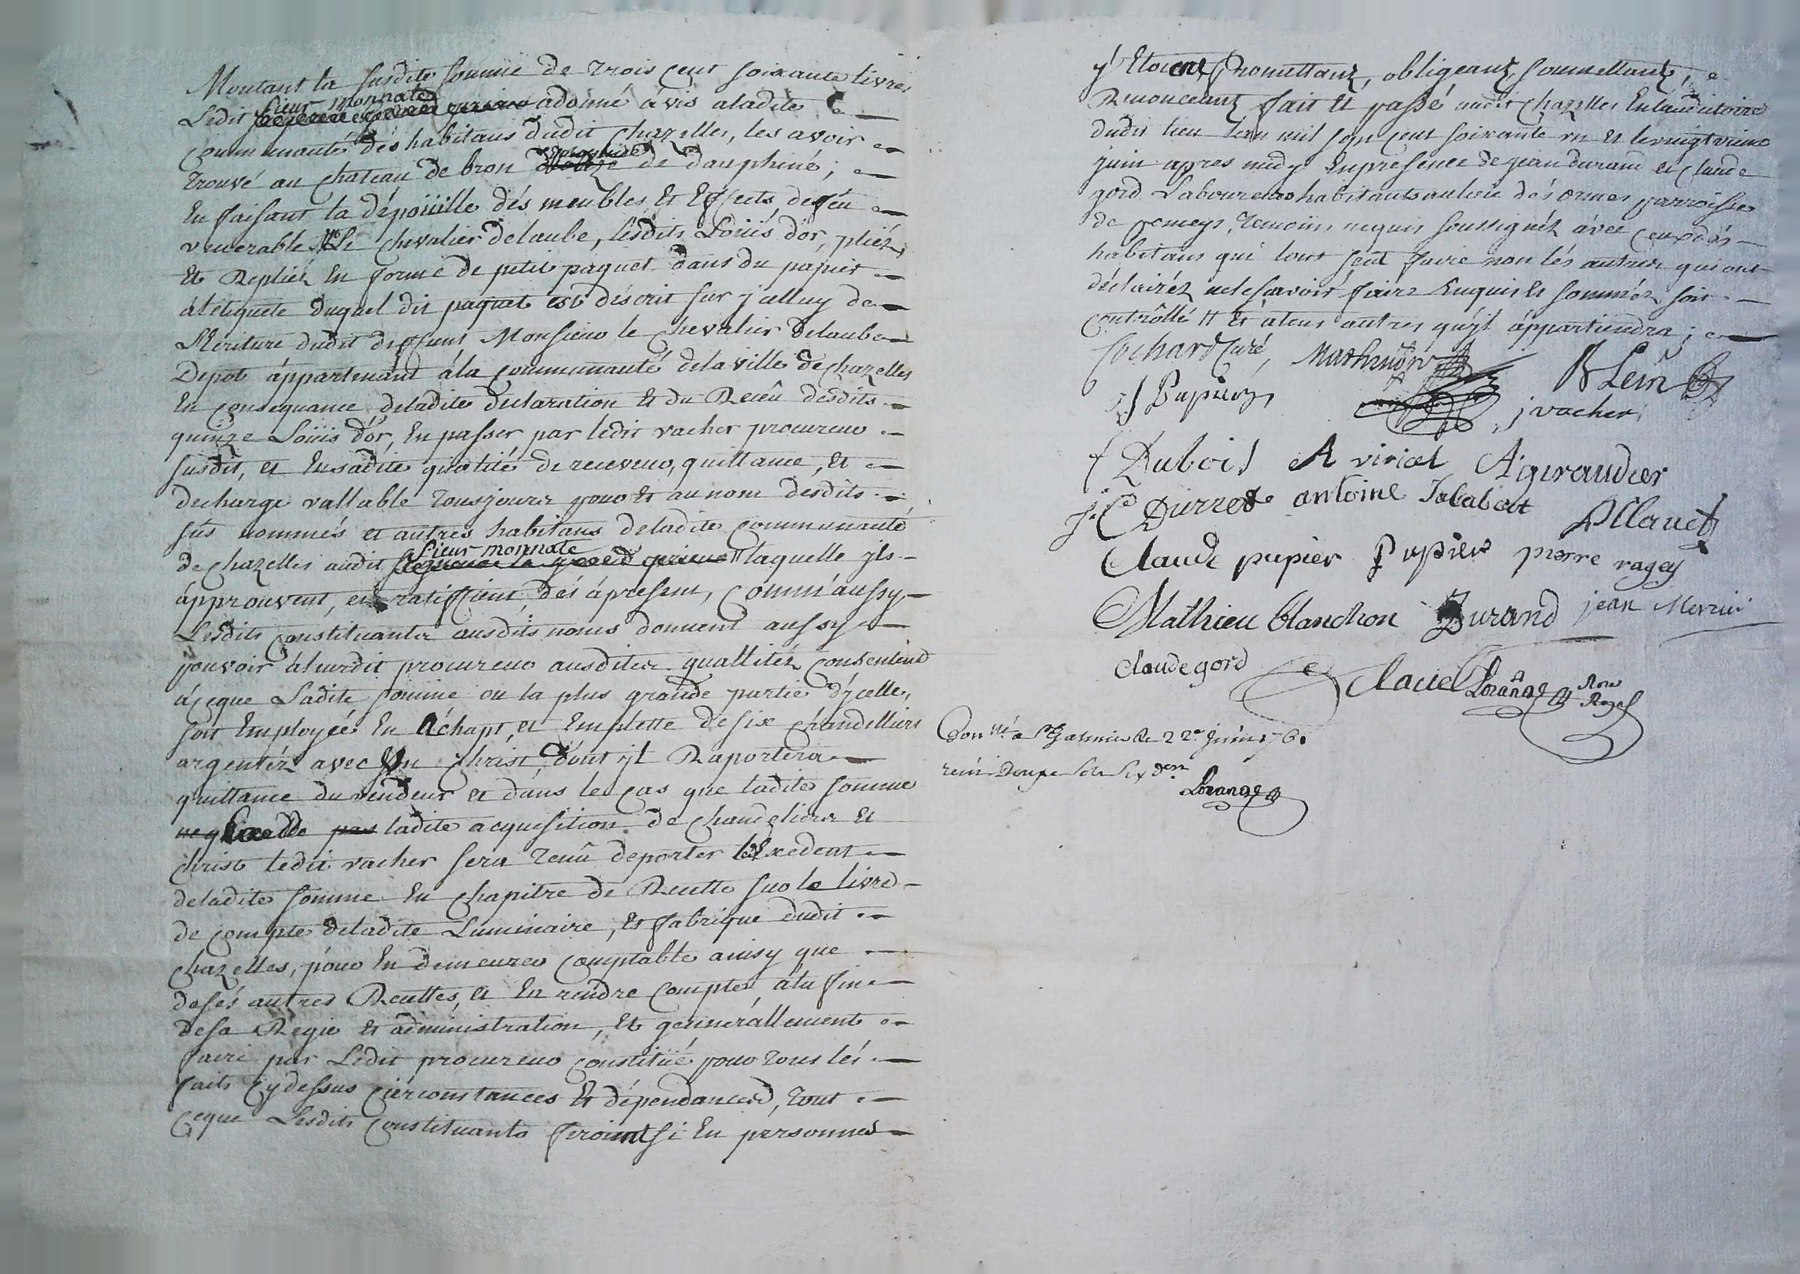 Montant la susdite somme de trois cent soixante livres
Ledit sieur monnate a donné avis a ladite
communauté des habitans dudit Chazelles, les avoir
trouvé au chateau de bron de dauphiné ;
En faisant la dépoüille dés meubles et Effects, defeu
venerable Mre Le chevalier delaube, lésdits Loüis d'or, pliéz
Et Repliéz En forme de petit paquet dans du papier
al'etiquete duquel dit paquet est déscrit sur j'celluy de
L'ecriture dudit deffunt Monsieur le chevalier delaube
Depot áppartenant ála communauté dela ville de chazelles
En consequance deladite declaration et du Reçû desdits
quinze Loüis d'or, En passer par lédit vacher procureur
susdit, et Ensadite qualité de receveur, quittance, et
decharge vallable tousjours pour et au nom desdits
sus nommés et autres habitans deladite communauté
de chazelles audit sieur monnate laquelle jls
ápprouvent, et ratiffient dés ápresent, comm'aussy
Lesdits constituants ausdits noms donnent aussy
pouvoir áleurdit procureur ausdites quallitéz consentend
ácque Ladite somme ou la plus grande partie d'jcelle,
soit Employée En áchapt, et Emplette desix chandelliers
argentéz avec Un Christ, dont jl Raportera
quittance du vendeur et dans le cas que ladite somme
Excedde ladite acquisition de chandeliers et
christ ledit vacher sera tenû deporter l'Exedent
deladite somme En chapitre de Recette sur le livre
de compte deladite Luminaire, et fabrique dudit
chazelles, pour En demeurer comptable ainsy que
desés autres Recettes, et En rendre compte ála fin
desa Regie et administration, Et generállement
faire par Ledit procureur constitüé pour tous lés
faits cydessus circonstances et dépendances, tout
ceque Lesdits constituants feroient si En personnes
y Etoient, Promettant, obligeant, soumettant,
Renonceant fait et passé audit chazelles En l'auditoire
dudit lieu l'an mil sept cent soixante un et le vingt
juin apres midy Enpresence de jean durand et claude
gord Laboureurs habitants aulieu dés ormes parroisse
de pomeys, temoins requis soussignéz ávec ceux dés
habitans qui l'ont sçeu faire non lés autres qui ont
déclairéz nelesavoir faire Enquis et sommés soit
controllé et atous autres qu'jl áppartiendra ;
Cochard Curé,
J Papier
j vacher
Dubois A viricel A giraudier
J. C Durret antoine
Claude papier Papier pierre ragey
Mathieu blanchon Durand jean
claude gord
Clavel